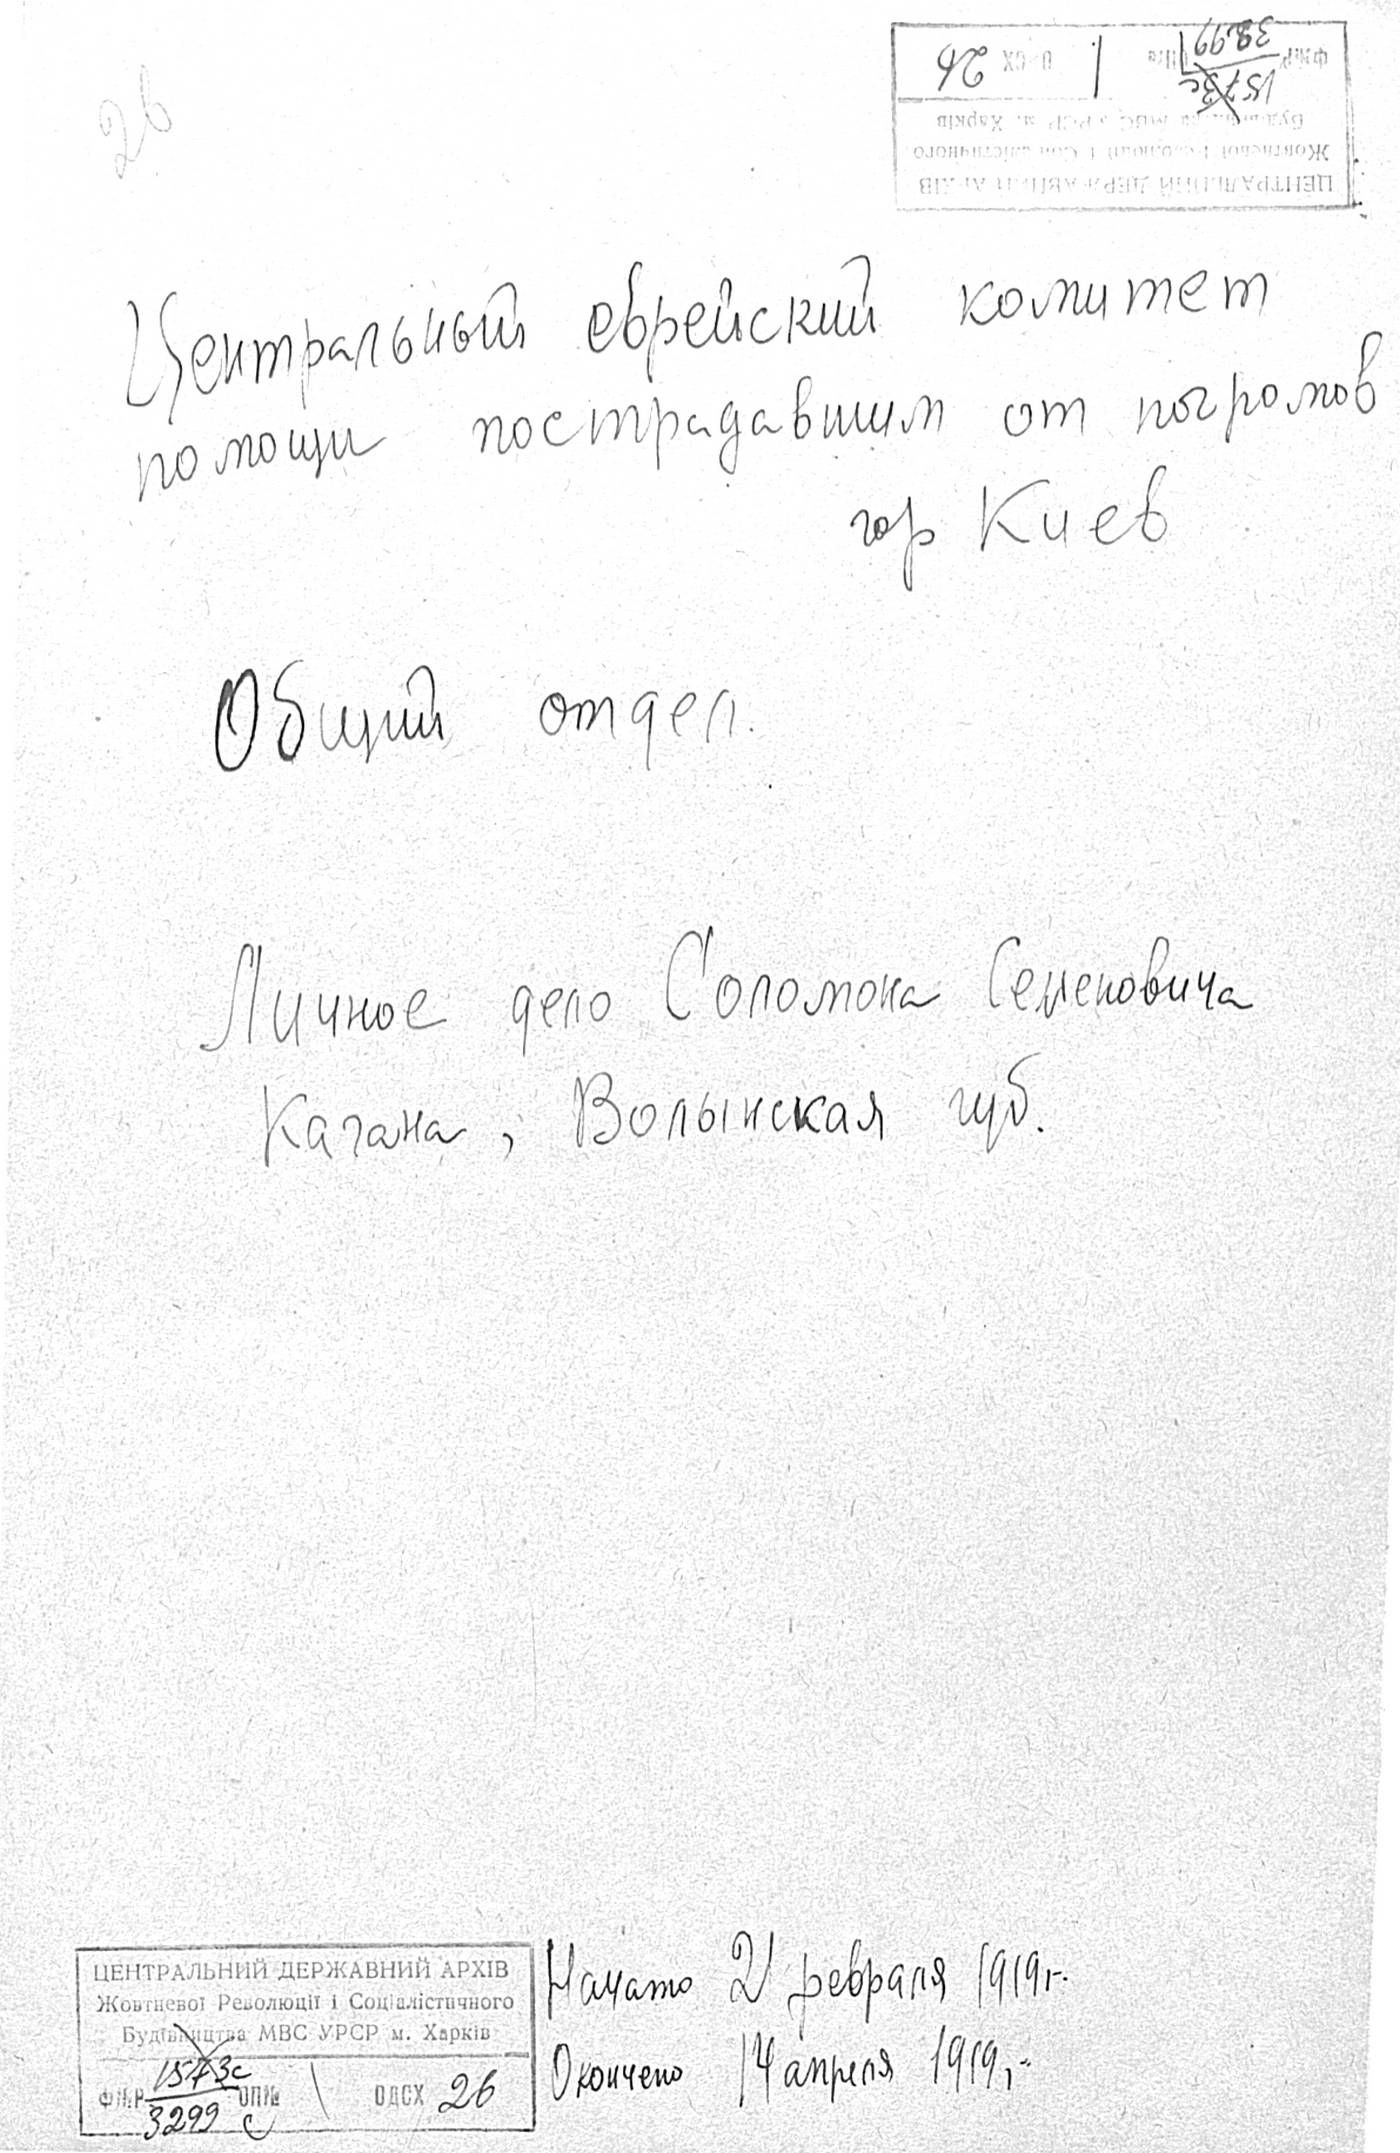 26
ЦЕНТРАЛЬНИЙ ДЕРЖАВНИЙ АРХІВ
Жовтневої Революції і Соціалістичного
Будівництва МВС УРСР м. Харків
1573с
3299
26
Центральный еврейский комитет
помощи пострадавшим от погромов
гор Киев
Общий отдел.
Личное дело Соломона Семеновича
Кагана, Волынская губ.
Начато 21 февраля 1919 г.
Окончено 14 апреля 1919 г.
ЦЕНТРАЛЬНИЙ ДЕРЖАВНИЙ АРХІВ
Жовтневої Революції і Соціалістичного
Будівництва МВС УРСР м. Харків
1573с
Ф№Р ОП№ 1 ОДСХ 26
3299 с